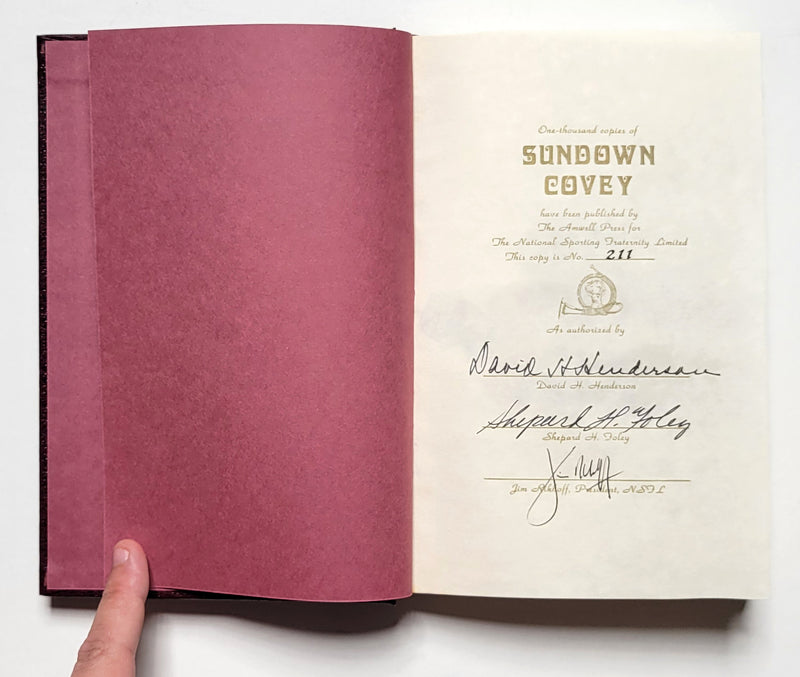 One-thousand copies of
SUNDOWN
COVEY
have been published by
The Amwell Press for
The National Sporting Fraternity Limited
This copy is No. 211
As authorized by
David H Henderson
David H. Henderson
Shepard H. Foley
Shepard H. Foley
Jim
Jim President, NSFL